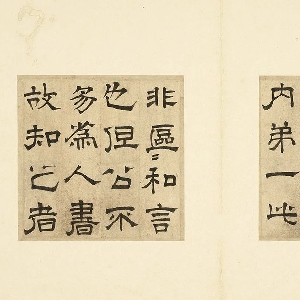 内弟一此
非區〻私言
也但公不
多為人書
故知之者